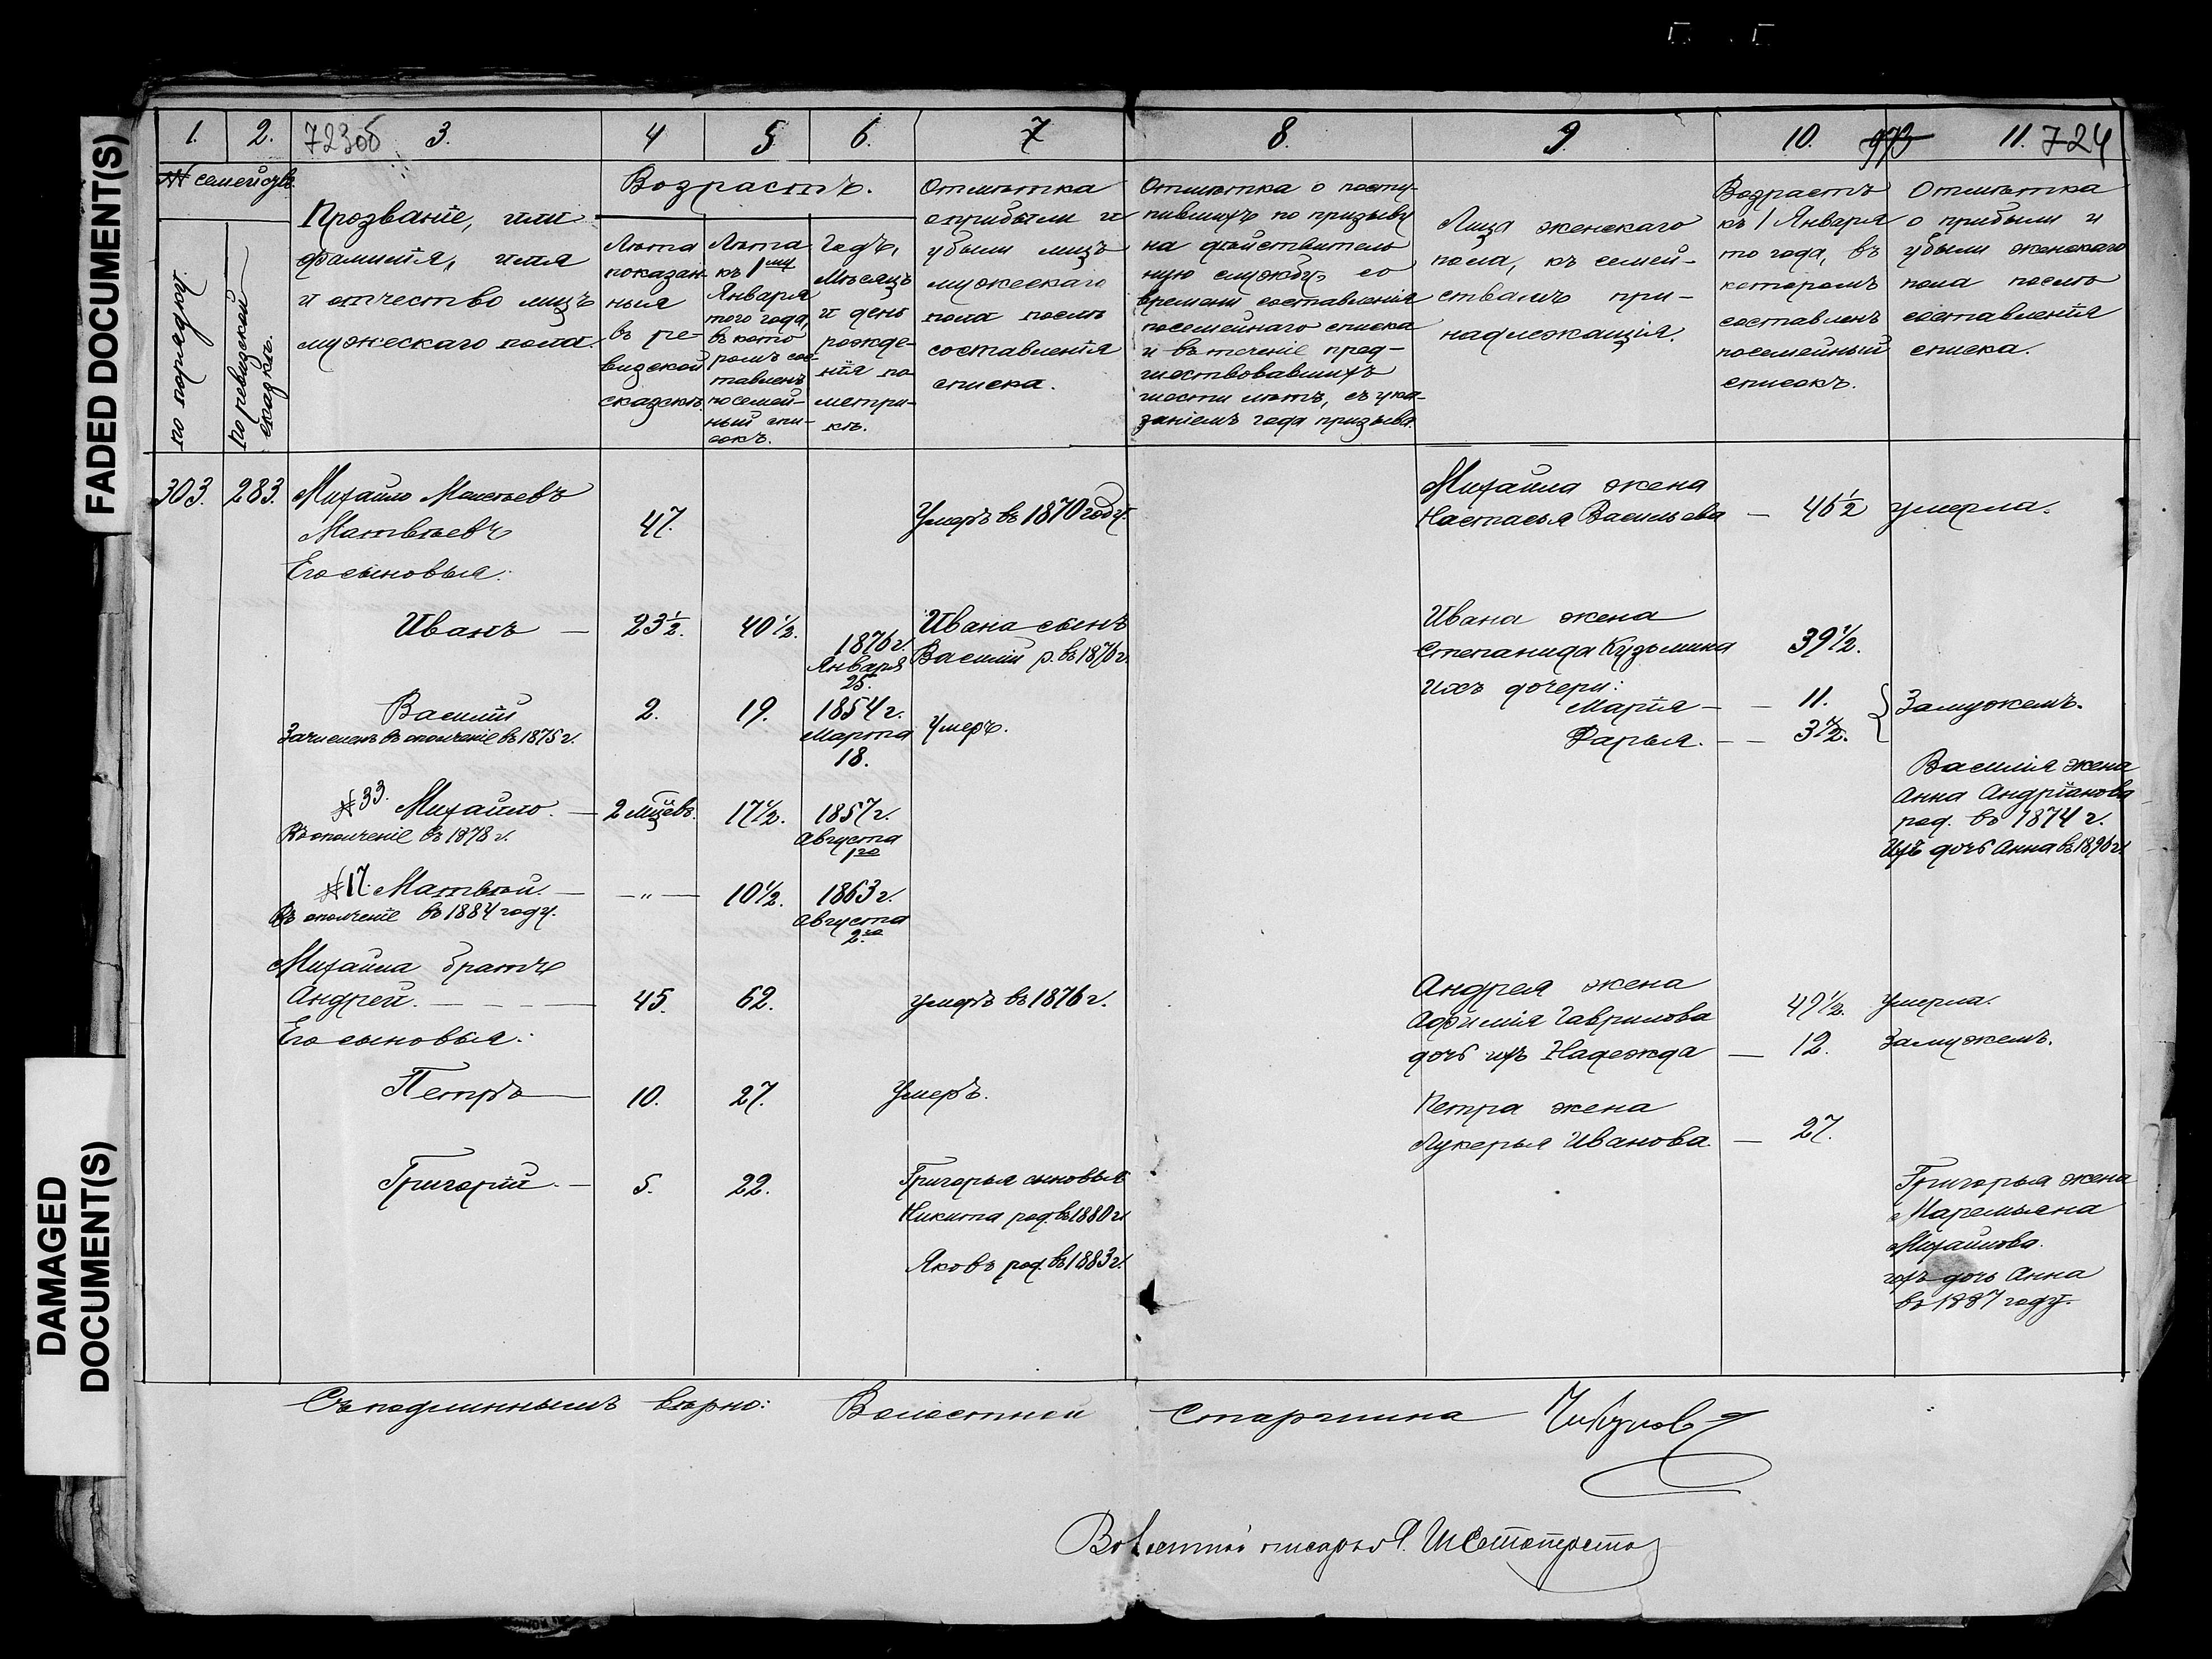 FADED DOCUMENT(S)
DAMAGED
DOCUMENT(S)
1. 2. 723об 3. 4 5 6. 7 8. 9. 10. 11. 724
№ семействъ.
по порядку.
по ревизской
сказкѣ.
Прозваніе, или
фамилія, имя
и отчество лицъ
мужескаго пола.
Возрастъ.
Лѣта
показан-
ныя
въ ре-
визской
сказкѣ.
Лѣта
къ 1му
Января
того года,
въ кото
ромъ сос-
тавленъ
посемей-
ный спи-
сокъ.
Годъ,
Мѣсяцъ
и день
рожде-
нія по
метри-
кѣ.
Отмѣтка
о прибыли и
убыли лицъ
мужескаго
пола послѣ
составленія
списка.
Отмѣтка о посту-
пившихъ по призыву
на дѣйствитель
ную службу, со
времени составленія
посемейнаго списка
и въ теченіе пред-
шествовавшихъ
шести лѣтъ, съ ука-
заніемъ года призыва.
Лица женскаго
пола, къ семей-
ствамъ при-
надлежащія.
Возрастъ
къ 1 Января
то года, въ
которомъ
составленъ
посемейный
списокъ.
Отмѣтка
о прибыли и
убыли женскаго
пола послѣ
составленія
списка.
303. 283. Михайло
Матвѣевъ 47. Умеръ въ 1870 году.
Его сыновья:
Иванъ — 23½. 40½. Ивана сынъ
1876 г.
Января
25.
Василій р. въ 1876 г.
Василій 2. 19. 1854 г.
Марта
18.
умеръ.
Зачисленъ въ ополченіе въ 1875 г.
№ 33. Михайло. — 2 мцевъ. 17½. 1857 г.
Августа
1го
Въ ополченіе въ 1878 г.
№ 17. Матвѣй. — —„— 10½. 1863 г.
Августа
2го
Въ ополченіе въ 1884 году.
Михаила братъ
Андрей. — — — 45. 62. умеръ въ 1876 г.
Его сыновья:
Петръ — 10. 27. Умеръ.
Григорій. — 5. 22. Григорья сыновья
Никита род. въ 1880 г.
Яковъ род. въ 1883 г.
Михайла жена
Настасья Васильева — 46½ умерла.
Ивана жена
Степанида Кузьмина 39½.
Ихъ дочери:
Марія — — 11. Замужемъ.
Дарья. — — 3½.
Василія жена
Анна Андріанова
род. въ 1874 г.
Ихъ дочь Анна въ 1896 г.
Андрея жена
Афимія Гаврилова 49½. умерла.
дочь ихъ Надежда — 12. замужемъ.
Петра жена
Лукерья Иванова. — 27.
Григорья жена
Маремьяна
Михайлова.
ихъ дочь Анна
въ 1887 году.
Съ подлиннымъ вѣрно: Волостной Старшина
Волостной писарь